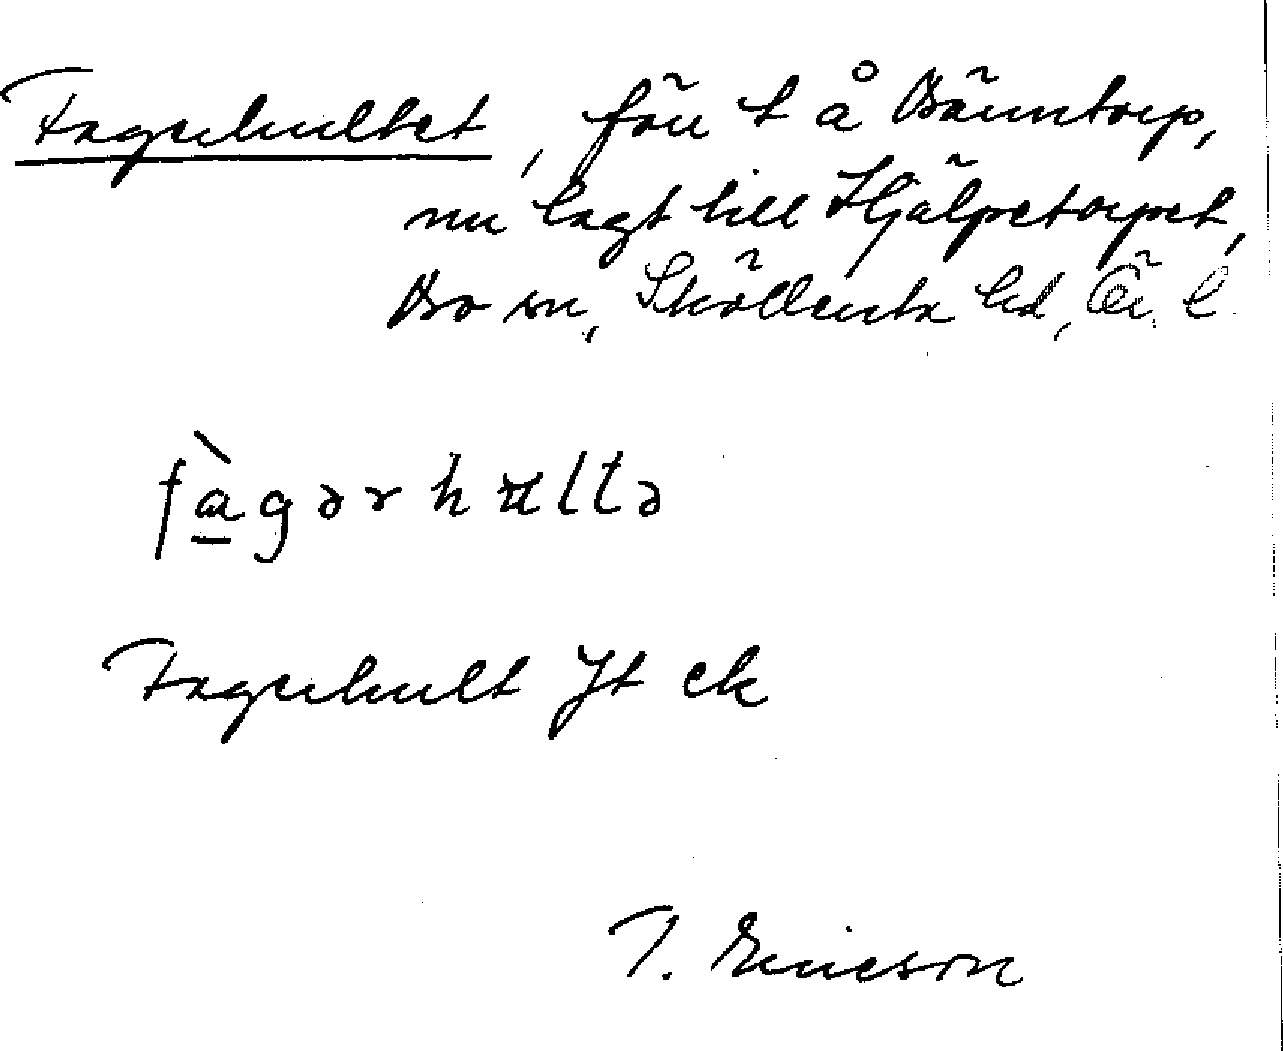 Fagerhultet, förr t å Bänntorp,
nu lagt till Hjälpetorpet,
Bo sn, Sköllersta hd, Ör. l.
fàgərhulltə
Fagerhult Jt ek
T. Ericson